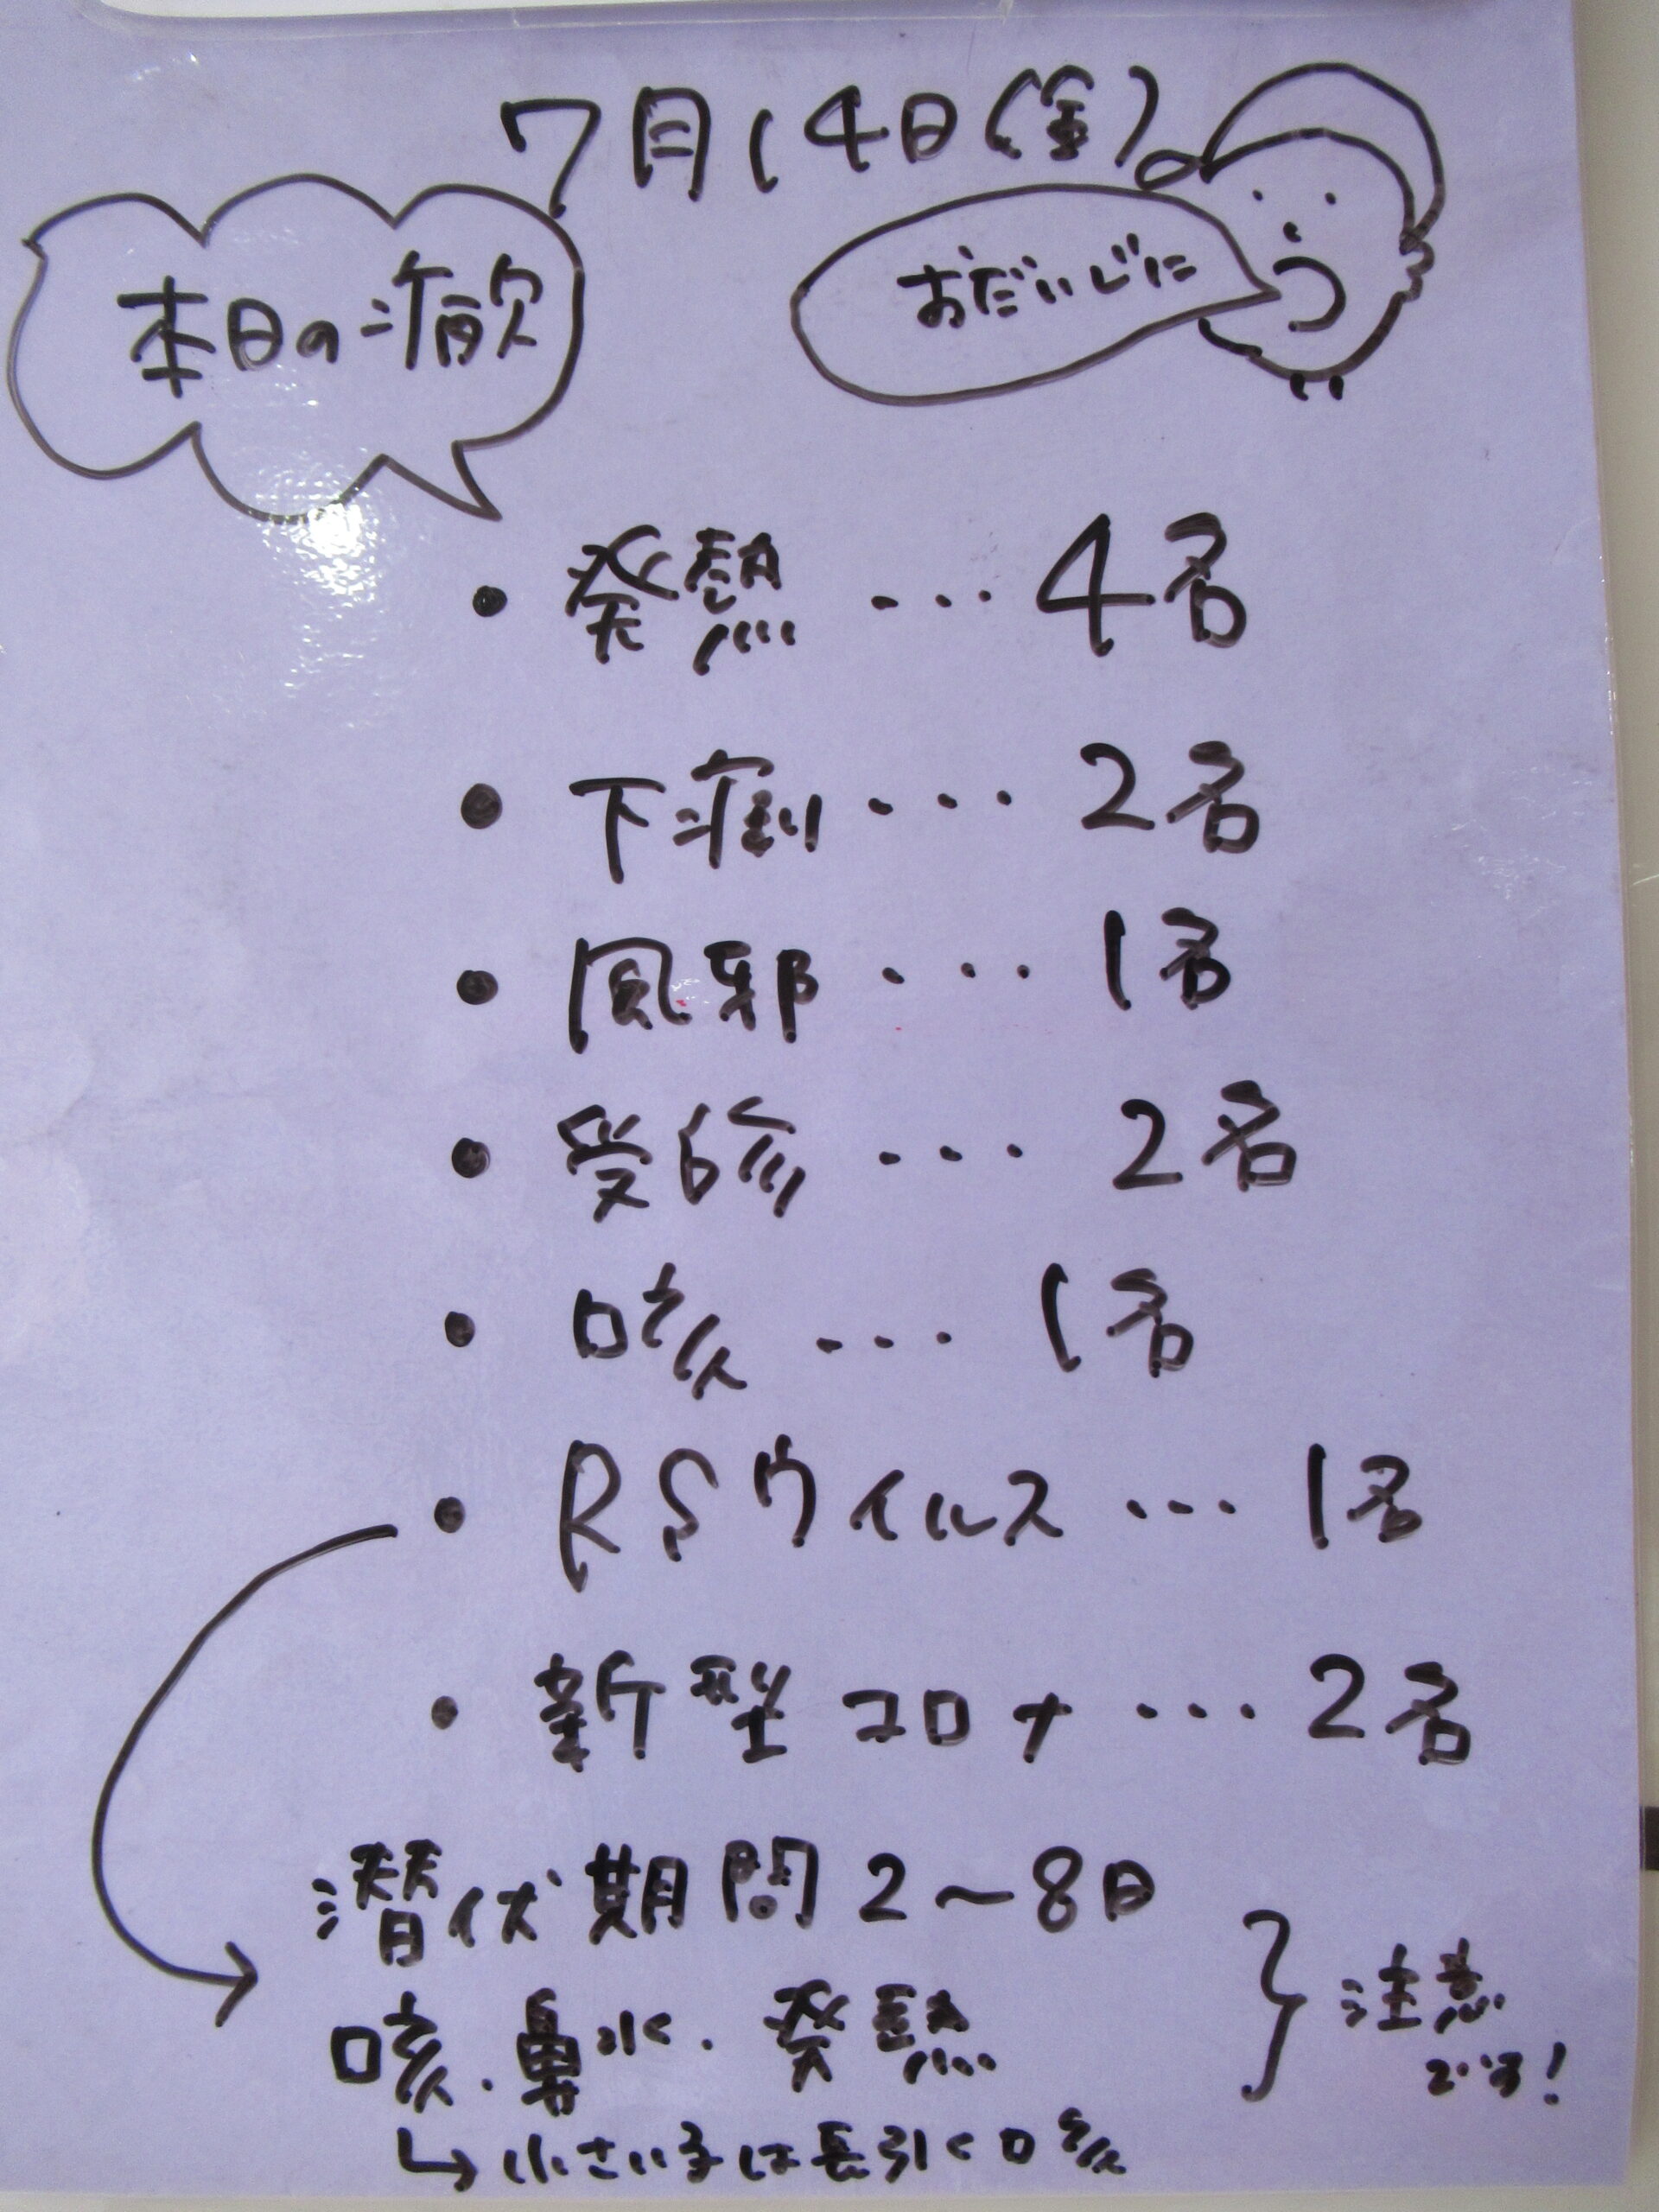 7月14日(金)
本日の病欠
おだいじに
・発熱…4名
・下痢…2名
・風邪…1名
・受診…2名
・咳…1名
・RSウイルス…1名
・新型コロナ…2名
潜伏期間2~8日
咳.鼻水.発熱
注意
です!
↳小さい子は長引く咳